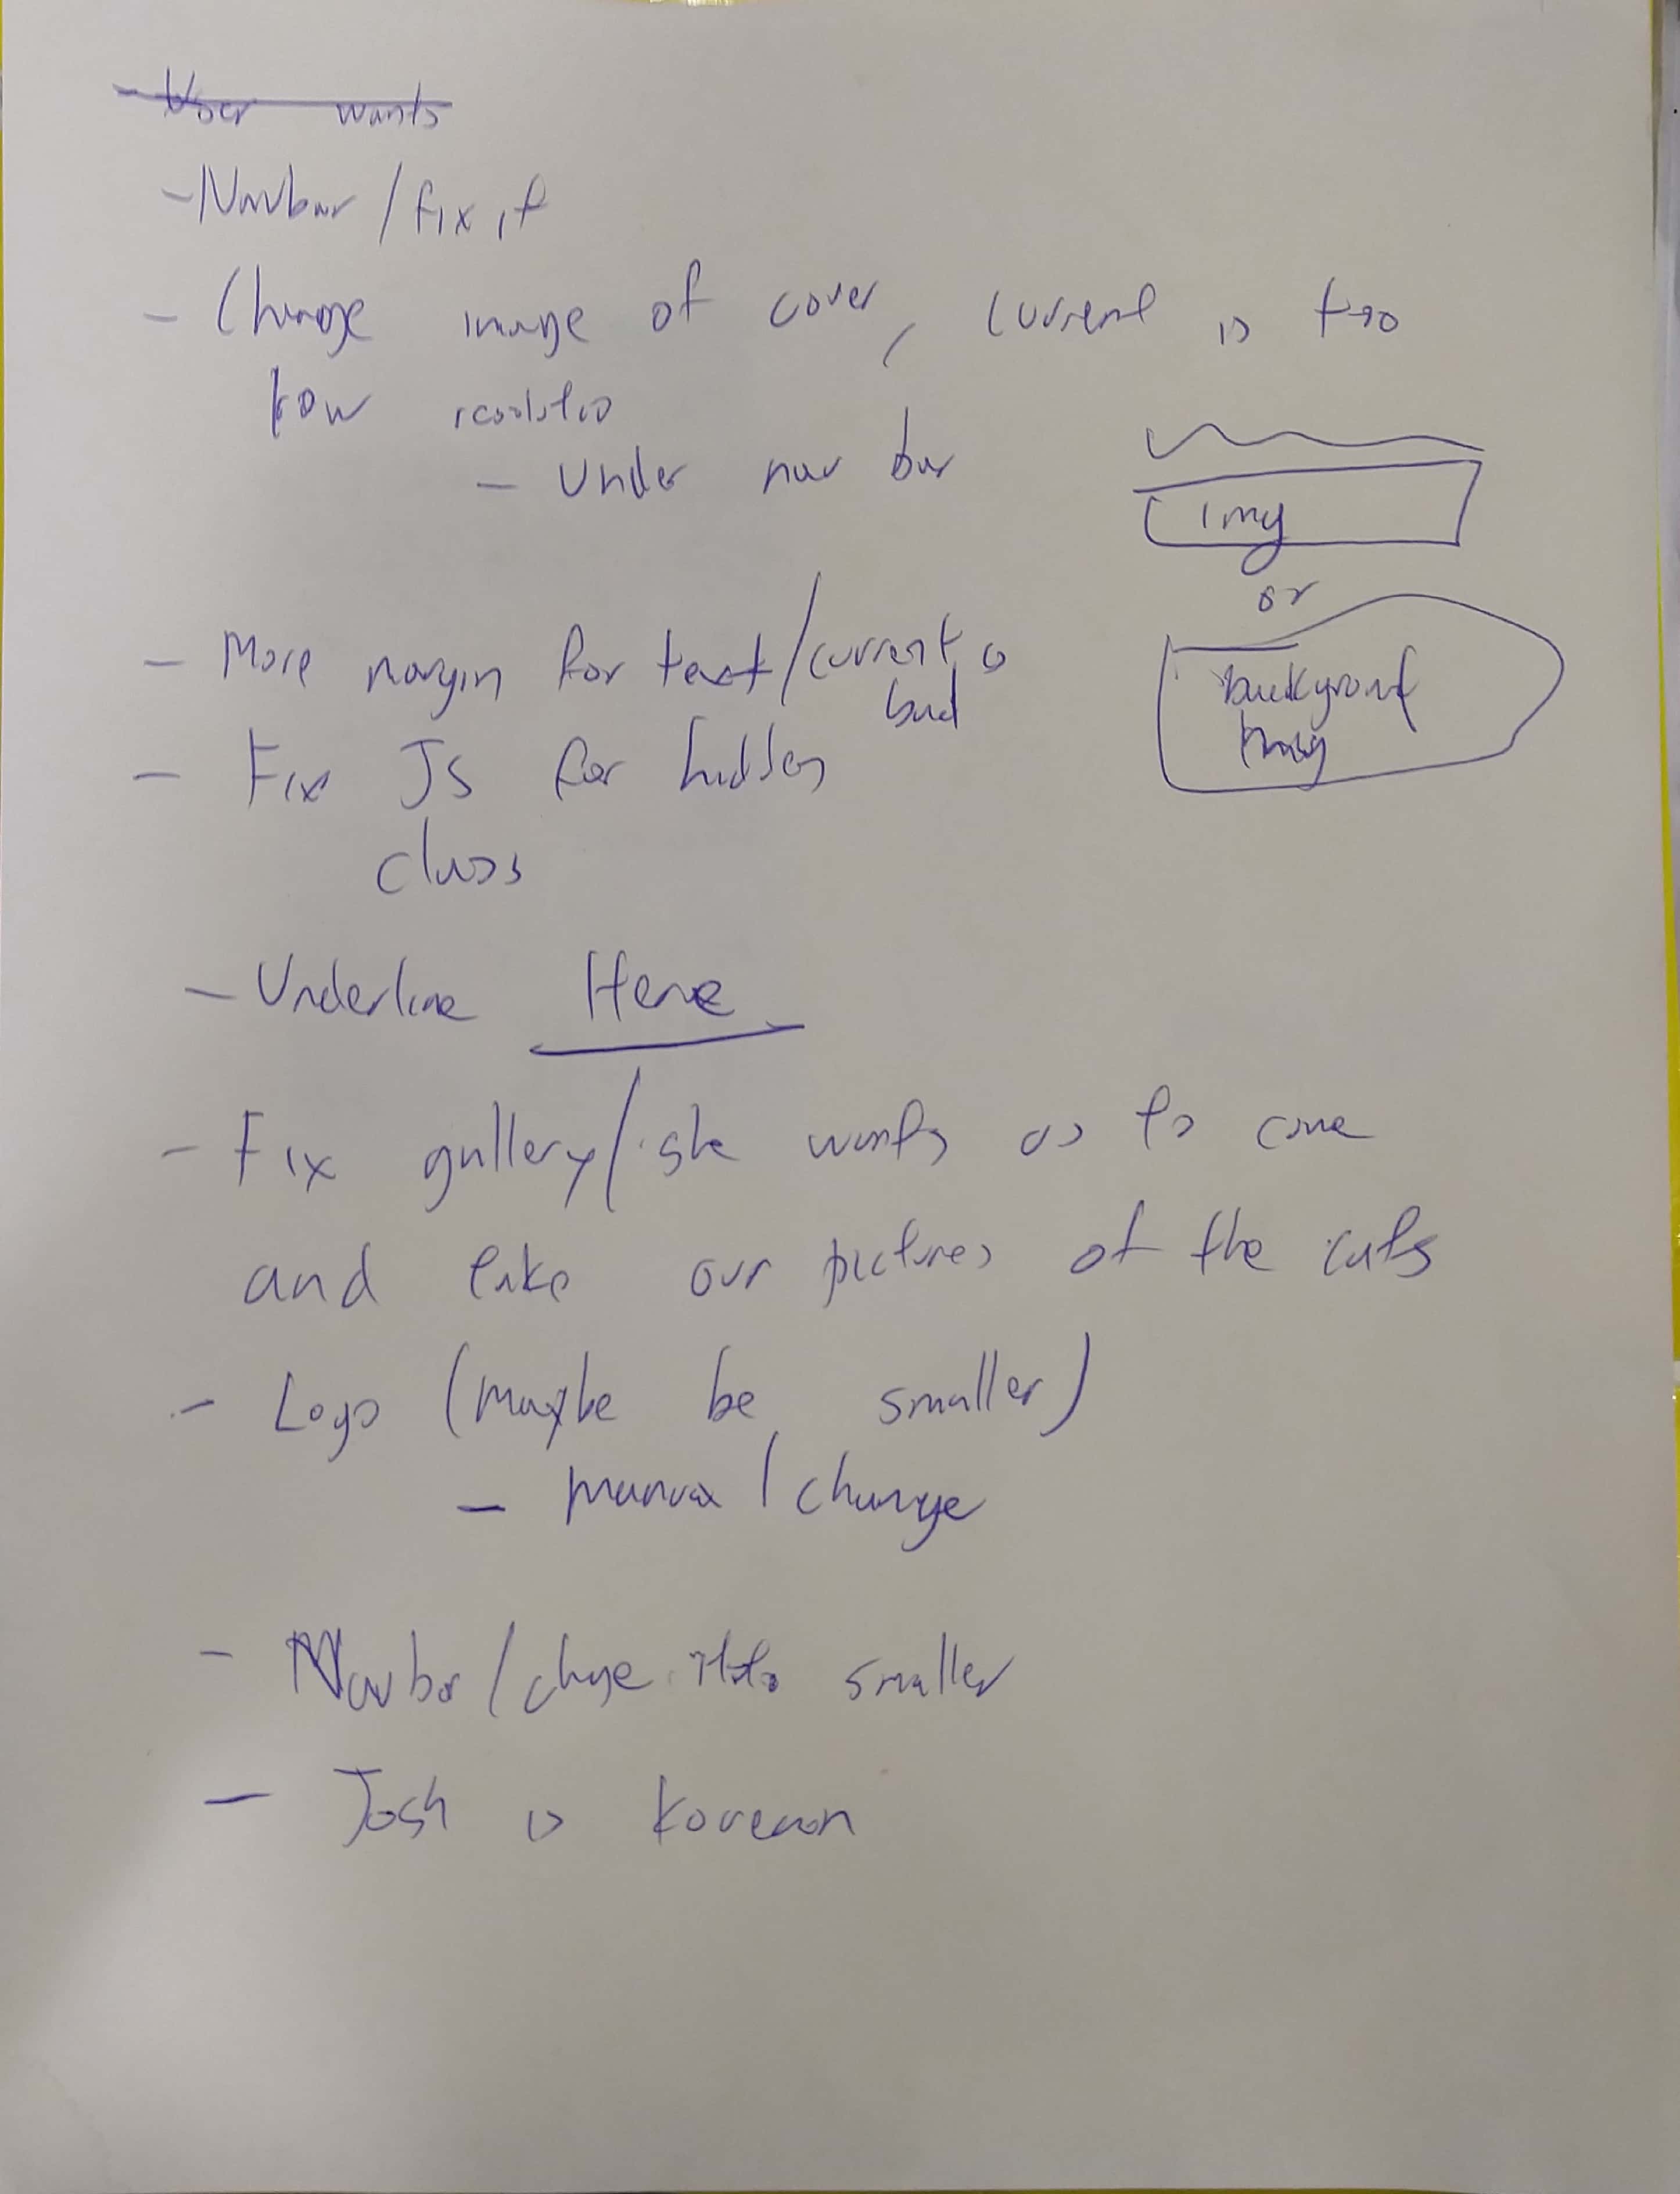 - User wants
- Navbar / fix it
- Change image of cover, current is too
low resolutio
- Under nav bar
img
or
background
img
- More margin for text / current is
bad
- Fix JS for hidden
class
- Underline Here
- Fix gallery / she wants us to come
and take our pictures of the cats
- Logo (maybe be smaller)
- manual change
- Navbar / change it to smaller
- Josh is Korean